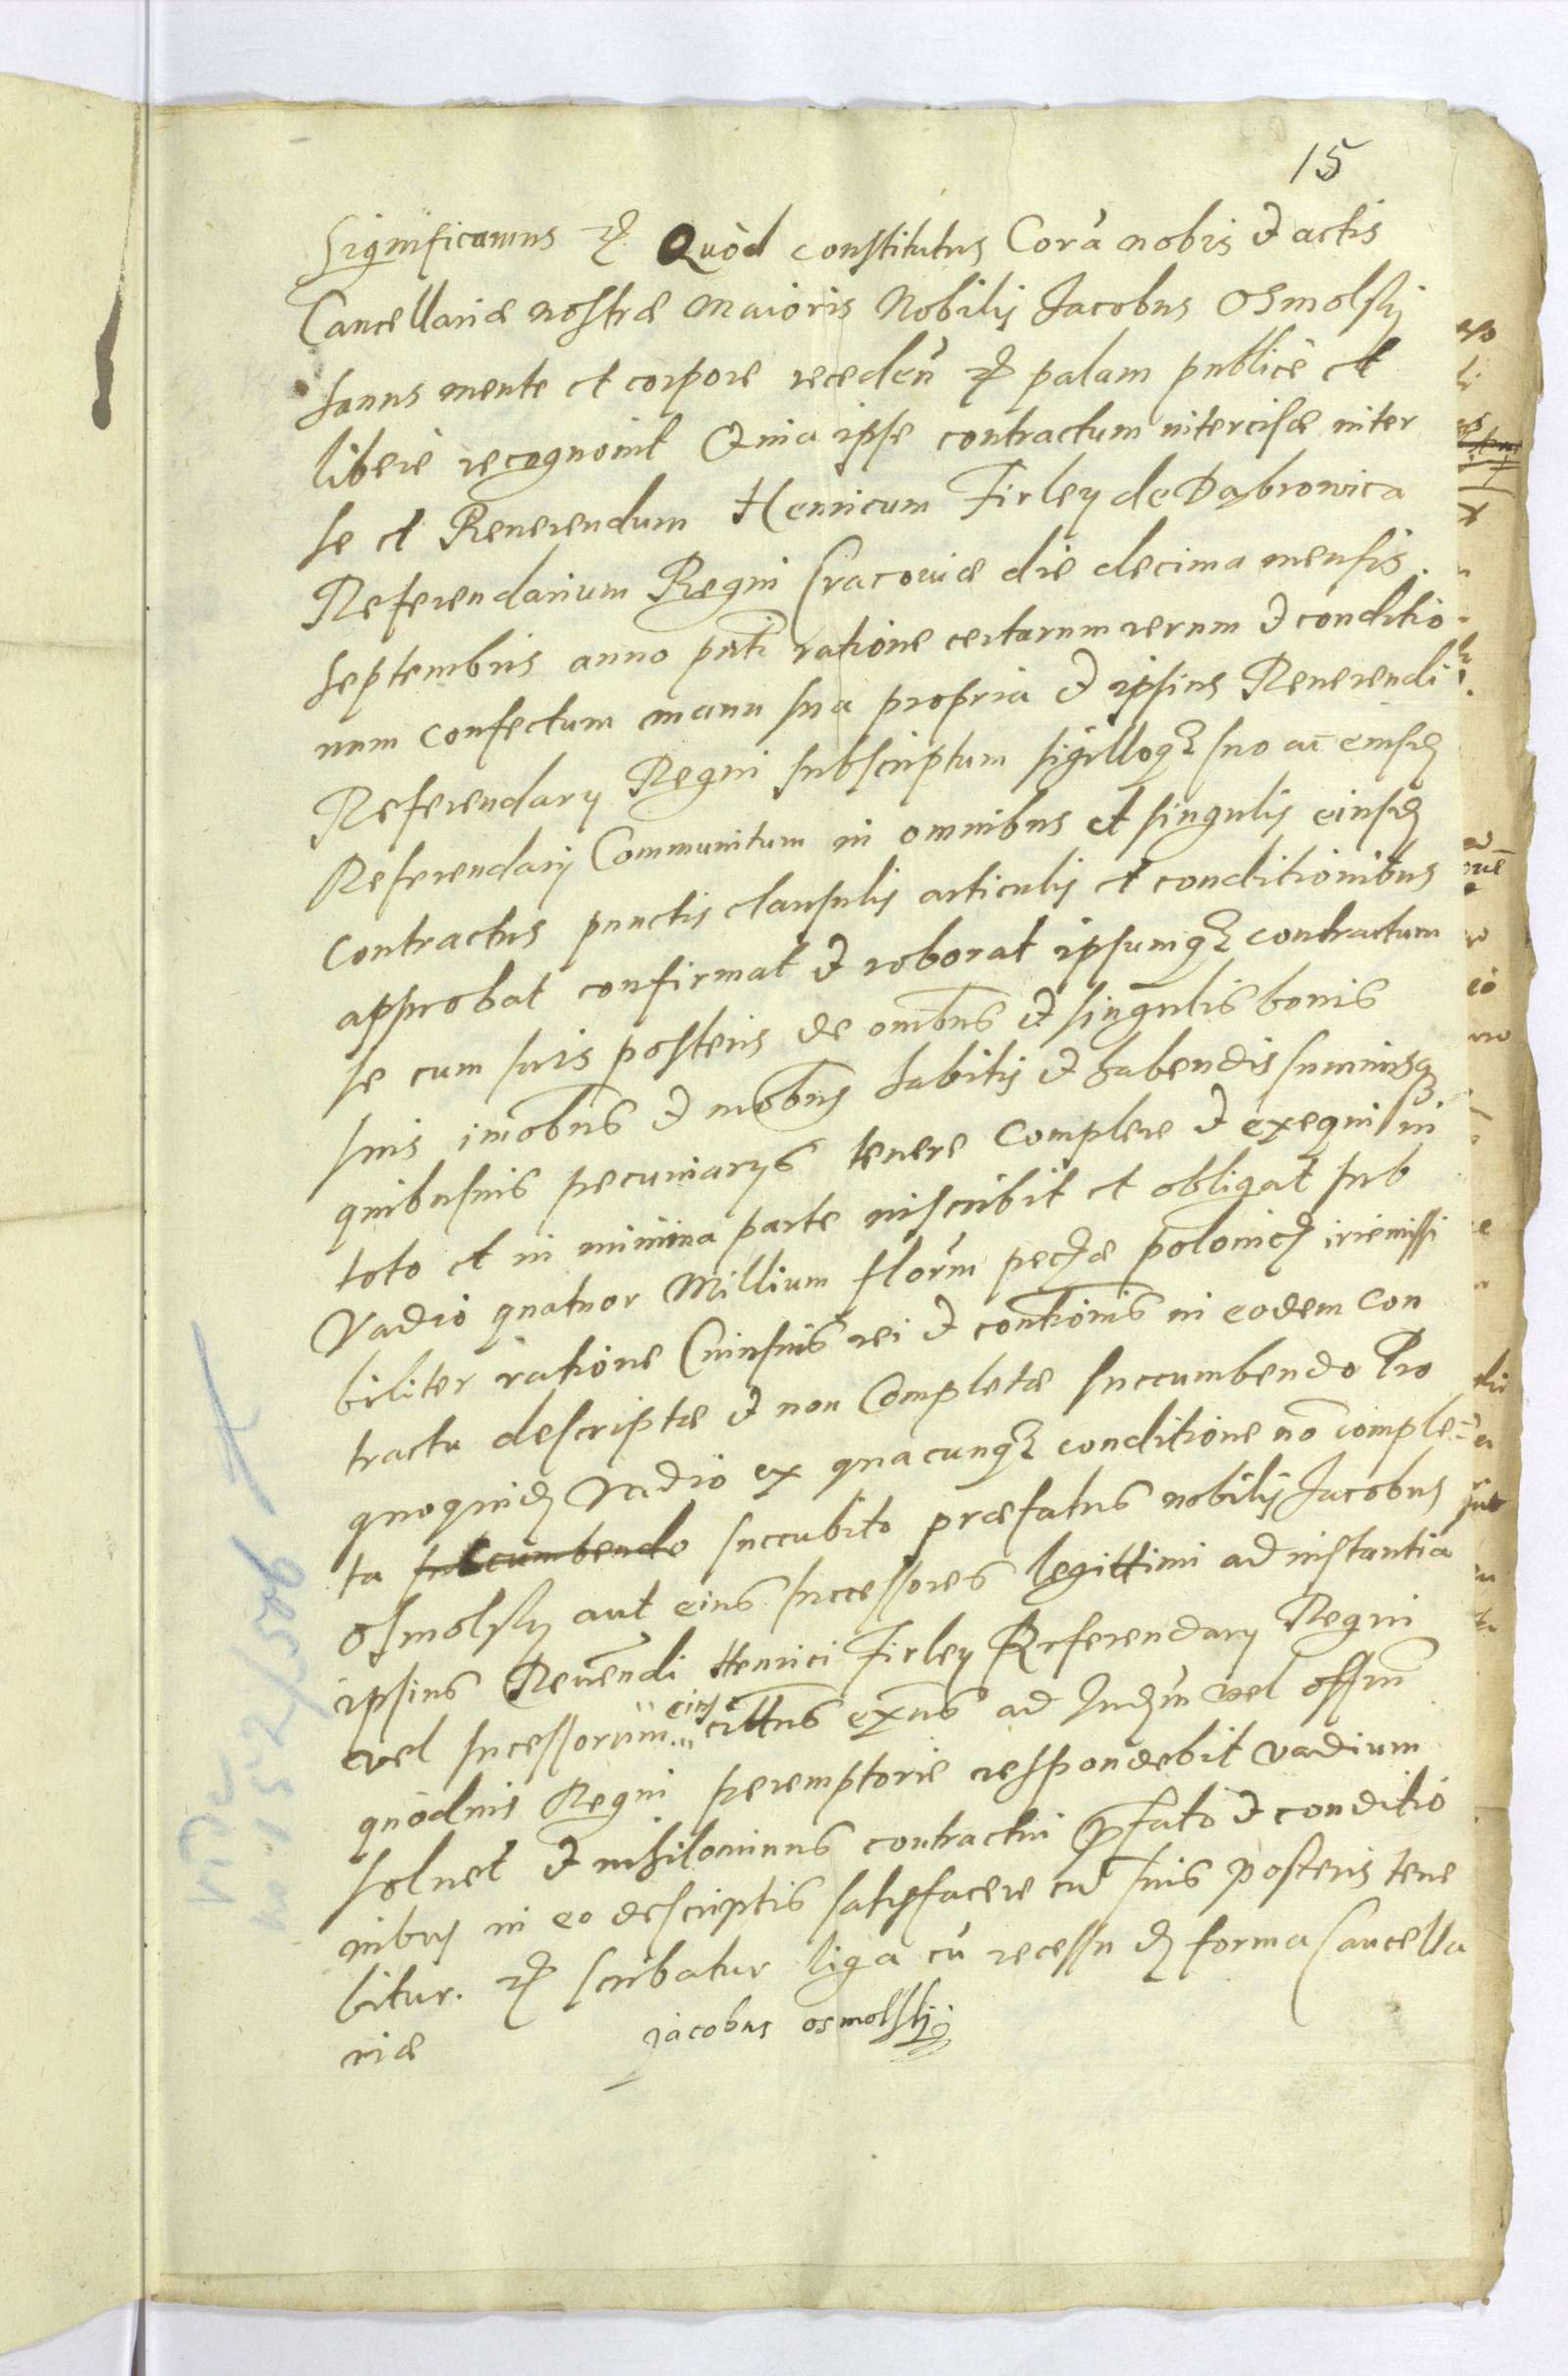 15
Significamus etc. Quòd constitutus Corã nobis & actis
Cancellariæ nostræ maioris Nobilis Jacobus Osmolsky
sanus mente et corpore recedeñ etc. palam publicè et
liberè recognouit Quia ipse contractum intercisæ inter
se et Reuerendum Henricum Firley de Dąbrowica
Referendarium Regni Cracouiæ die decima mensis
septembris anno pñti ratione certarum rerum & conditio
num confectum manu sua propria & ipsius Reuerendi
Referendarij Regni subscriptum sigilloq; suo ac eiusd
Referendarij Communitum in omnibus et singulis eiusd
contractus punctis clausulis articulis et conditionibus
approbat confirmat & roborat ipsumq; contractum
se cum suis posteris de omĩbus & singulis bonis
suis imõbus & mõbus habitis & habendis summisq;
quibusuis pecuniarijs tenere complere & exequi in
toto et in minima parte inscribit et obligat sub
Vadio quatuor Millium florm pecæ polonic irremissi
biliter ratione Cuiusuis rei & conñtionis in eodem con
tractu descriptæ & non Completæ succumbendo Pro
quoquid Vadio ex quacunq; conditione nõ comple
ta succumbendo succubito præfatus nobilis Jacobus
Osmolsky aut eius successores legittimi ad instantiã
ipsius Reueñdi Henrici Firley Referendarij Regni
vel sucessorum eius cittus exñs ad Judm vel offm
quoduis Regni peremptorie respondebit vadium
soluet & nihilominus contractui pfato & conditio
nibus in eo descriptis satisfacere cũ suis posteris tene
bitur. etc. scribatur liga cũ recessu d forma Cancella
riæ
Jacobus osmolsky
vide
no 15-2/506